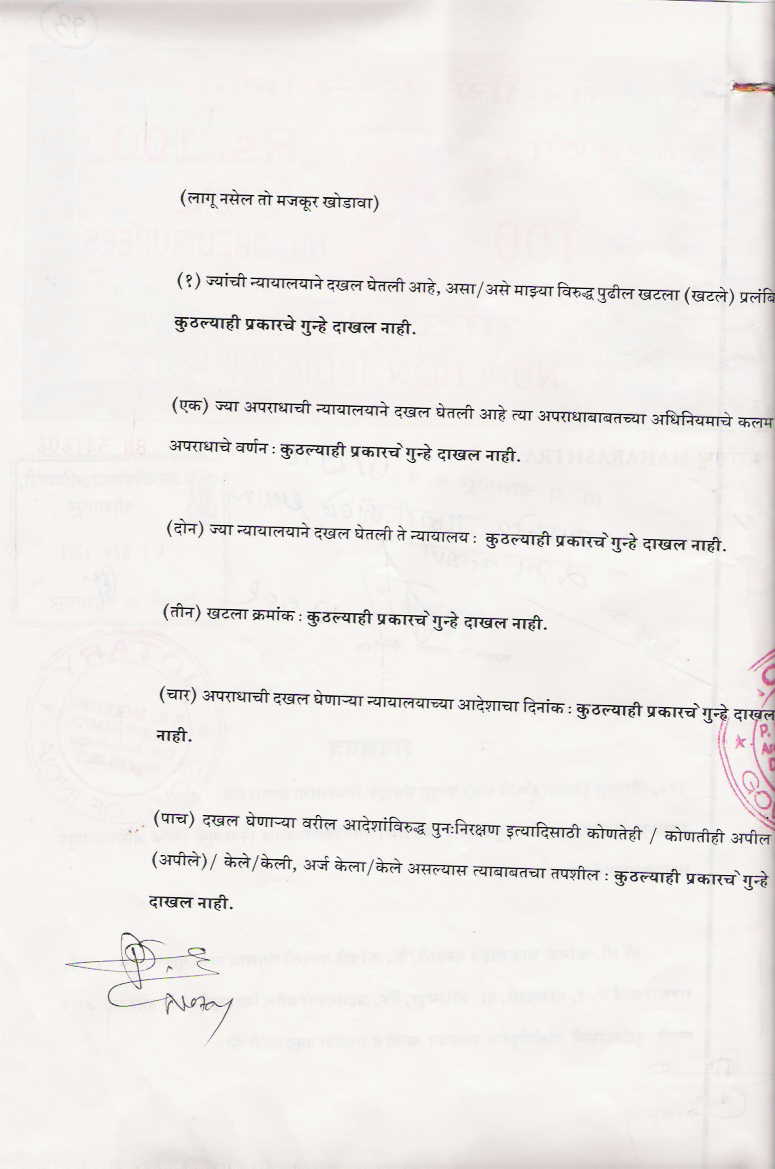 (लागू नसेल तो मजकूर खोडावा)
(१) ज्यांची न्यायालयाने दखल घेतली आहे, असा/असे माझ्या विरुद्ध पुढील खटला (खटले) प्रलंबि
कुठल्याही प्रकारचे गुन्हे दाखल नाही.
(एक) ज्या अपराधाची न्यायालयाने दखल घेतली आहे त्या अपराधाबाबतच्या अधिनियमाचे कलम
अपराधाचे वर्णन : कुठल्याही प्रकारचे गुन्हे दाखल नाही.
(दोन) ज्या न्यायालयाने दखल घेतली ते न्यायालय : कुठल्याही प्रकारचे गुन्हे दाखल नाही.
(तीन) खटला क्रमांक : कुठल्याही प्रकारचे गुन्हे दाखल नाही.
(चार) अपराधाची दखल घेणाऱ्या न्यायालयाच्या आदेशाचा दिनांक : कुठल्याही प्रकारचे गुन्हे दाखल
नाही.
(पाच) दखल घेणाऱ्या वरील आदेशांविरुद्ध पुनःनिरक्षण इत्यादिसाठी कोणतेही / कोणतीही अपील
(अपीले)/ केले/केली, अर्ज केला/केले असल्यास त्याबाबतचा तपशील : कुठल्याही प्रकारचे गुन्हे
दाखल नाही.